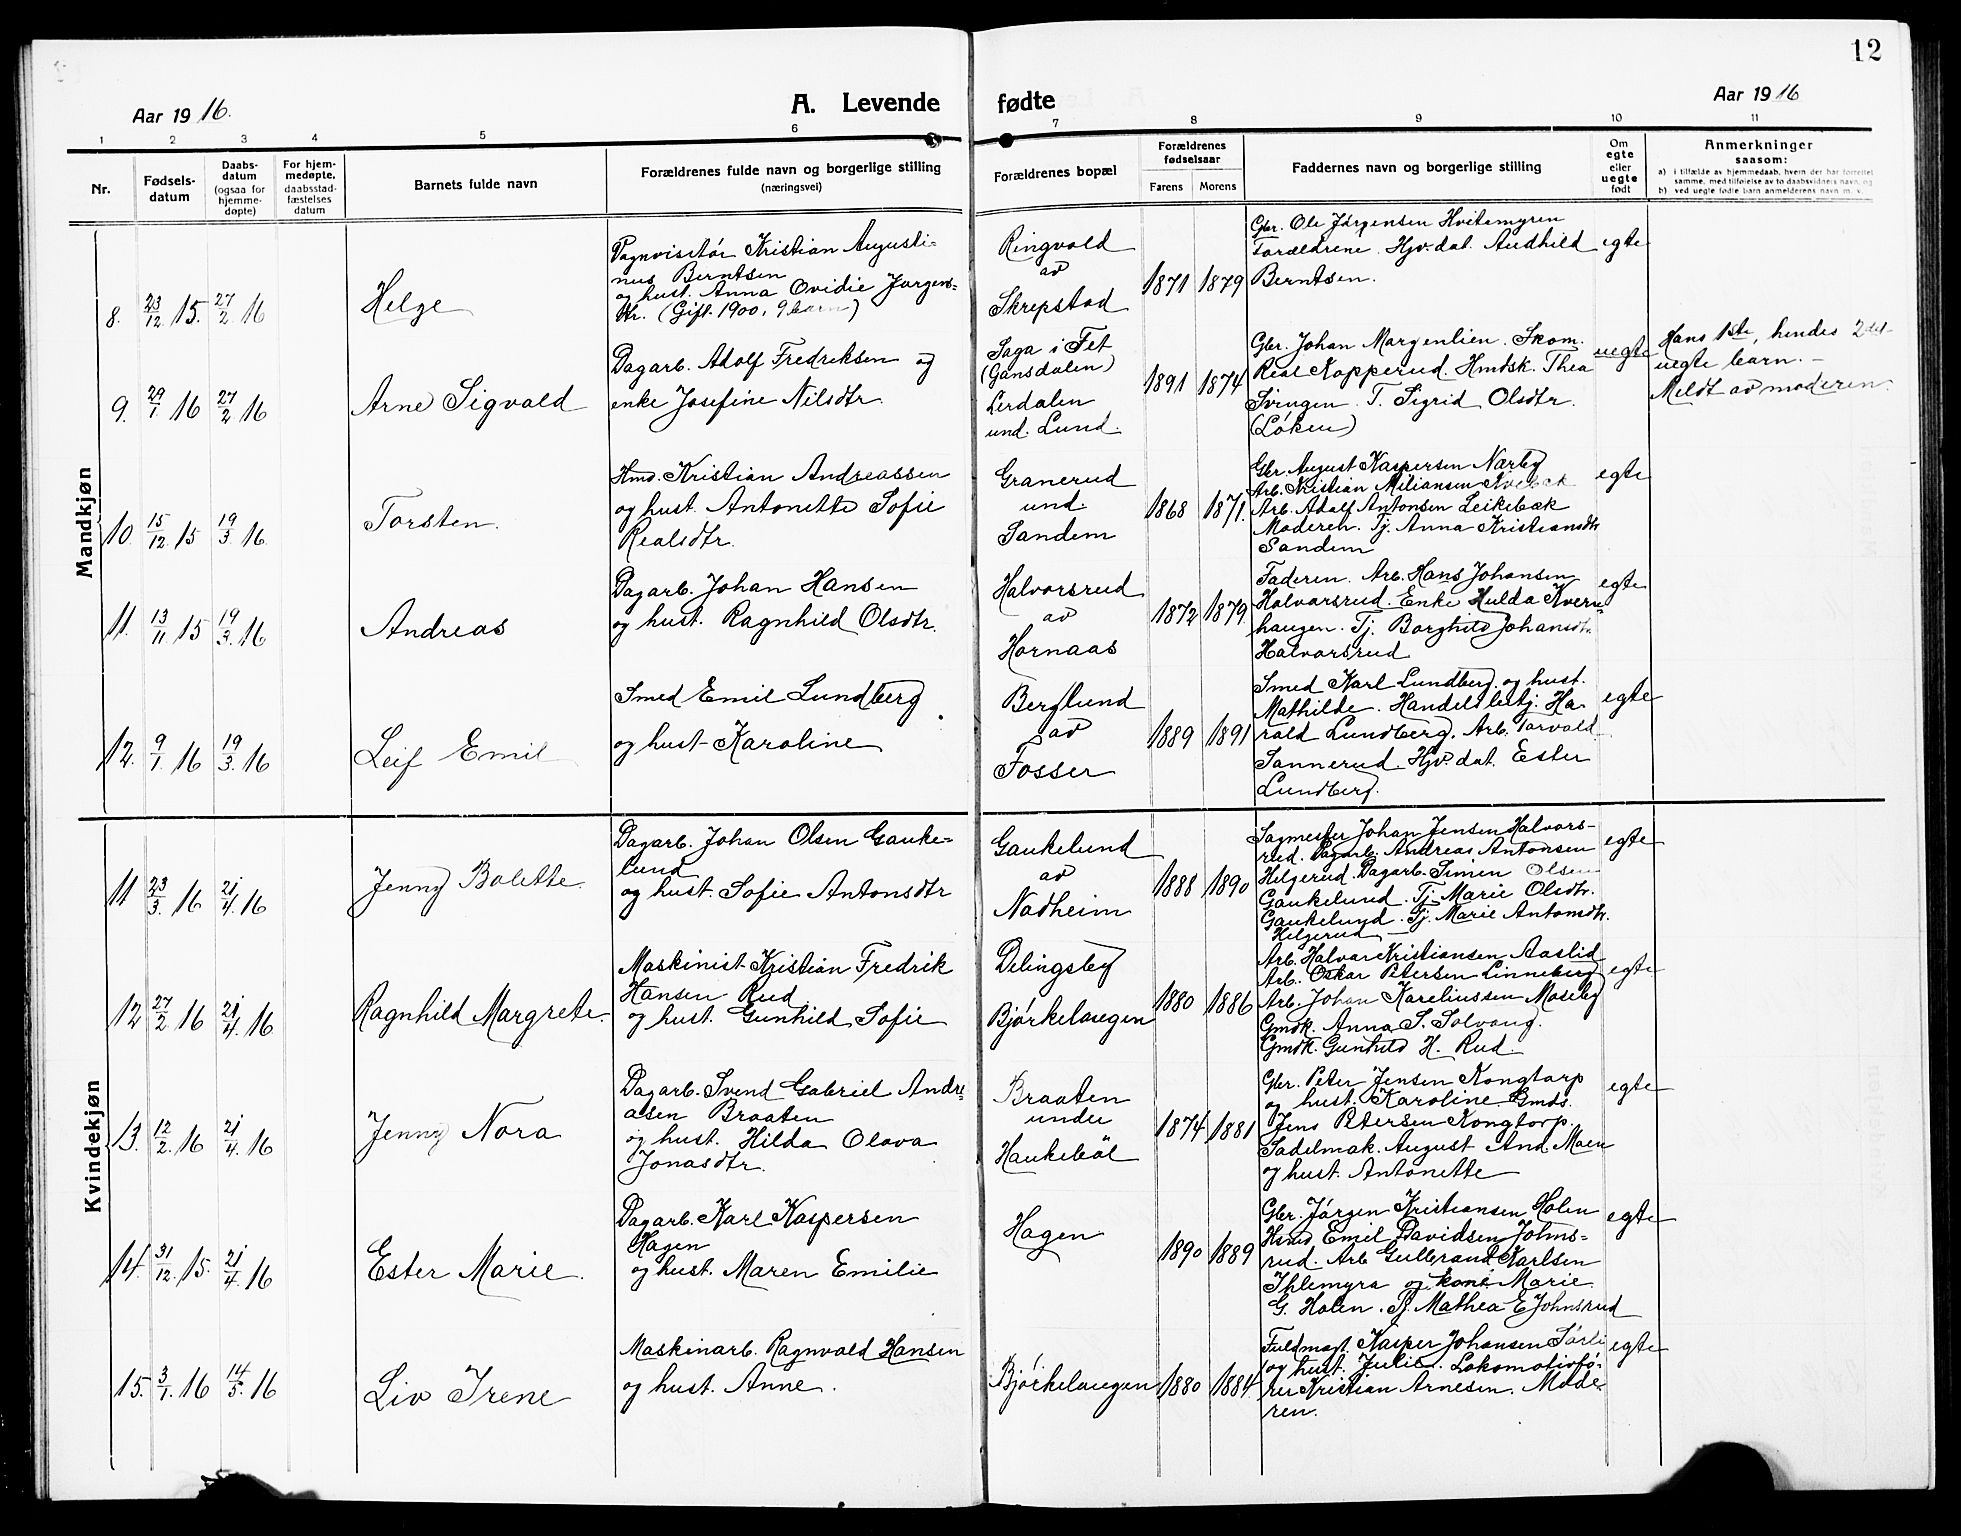 12
Aar 1916.
A. Levende fødte
Aar 1916
1 2 3 4 5 6 7 8 9 10 11
Nr.
Fødsels-
datum
Daabs-
datum
(ogsaa for
hjemme-
døpte)
For hjem-
medøpte.
daabsstad-
fæstelses
datum
Barnets fulde navn
Forældrenes fulde navn og borgerlige stilling
(næringsvei)
Forældrenes bopæl
Forældrenes
fødselsaar
Farens Morens
Faddernes navn og borgerlige stilling
Om
egte
eller
uegte
født
Anmerkninger
saasom:
a) i tilfælde av hjemmedaab, hvem der har forrettet
samme, med tilføielse av to daabsvidners navn, og
b) ved uegte fødte barn anmelderens navn m. v.
Mandkjøn
8. 23/12 15. 27/2 16
Helge
Vognvisitør Kristian Augusti-
nus Berntsen
og hust. Anna Ovidie Jørgens-
dtr. (Gift. 1900, 9 barn)
Ringvold
av
Skrepstad
1871 1879
Gbr. Ole Jørgensen Hvitemyren
Forældrene. Hjv. dat. Audhild
Berntsen.
egte
9. 29/1 16 27/2 16
Arne Sigvald
Dagarb. Adolf Fredriksen og
enke Josefine Nilsdtr.
Saga i Fet
(Gansdalen)
Lerdalen
und. Lund.
1891 1874
Gbr. Johan Morgenlien. Skom.
Real Kopperud. Hmdsk. Thea
Svingen. T. Sigrid Olsdtr.
(Løken)
uegte
Hans 1ste, hendes 2det
uegte barn. –
Meldt av moderen.
10. 15/12 15 19/3 16.
Torsten.
Hmd. Kristian Andreassen
og hust. Antonette Sofie
Realsdtr.
Granerud
und.
Sandem
1868 1871.
Gbr. August Kaspersen Nærby
Arb. Kristian Miliansen
Arb. Adolf Antonsen Leikebæk
Moderen. Tj. Anna Kristiansdtr
Sandem
egte
11. 13/11 15 19/3 16
Andreas
Dagarb. Johan Hansen
og hust. Ragnhild Olsdtr.
Halvorsrud
av
Hornaas
1872 1879.
Faderen. Arb. Hans Johansen
Halvorsrud. Enke Hulda Kvern-
haugen. Tj. Borghild Johansdtr.
Halvorsrud
egte
12. 9/1 16 19/3 16
Leif Emil
Smed Emil Lundberg
og hust. Karoline
Berglund
av
Fosser
1889 1891
Smed Karl Lundberg og hust.
Mathilde. Handelsbetj. Ha-
rald Lundberg. Arb. Torvald
Sannerud. Hjv. dat. Ester
Lundberg.
egte
Kvindekjøn
11 23/3 16 21/4 16
Jenny Bolette.
Dagarb. Johan Olsen Gauke-
lund
og hust. Sofie Antonsdtr
Gaukelund
av
Nadheim
1888 1890
Sagmester Johan Jensen Halvors-
rud. Dagarb. Andreas Antonsen
Helgerud. Dagarb. Simen Olsen
Gaukelund. Tj. Marie Olsdtr.
Gaukelund. Tj. Marie Antonsdtr.
Helgerud –
egte
12 27/2 16 21/4 16
Ragnhild Margrete.
Maskinist Kristian Fredrik
Hansen Rud
og hust. Gunhild Sofie
Delingsby
Bjørkelangen
1880 1886
Arb. Halvor Kristiansen Aaslid
Arb. Oskar Petersen Linneberg
Arb. Johan Kareliussen Moseby
Gmdk. Anna S. Solvang.
Gmdk. Gunhild H. Rud.
egte
13. 12/2 16 21/4 16
Jenny Nora
Dagarb. Svend Gabriel Andre-
asen Braaten
og hust. Hilda Olava
Jonasdtr.
Braaten
under
Haukebøl
1874 1881
Gbr. Peter Jensen Kongtorp
og hust. Karoline. Gmds.
Jens Petersen Kongtorp.
Sadelmak. August And. Moen
og hust. Antonette
egte
14. 31/12 15 21/4 16
Ester Marie.
Dagarb. Karl Kaspersen
Hagen
og hust. Maren Emilie
Hagen
1890 1889
Gbr. Jørgen Kristiansen Holen
Hsmd Emil Davidsen Johns-
rud. Arb. Gulbrand Karlsen
Ihlemyra og kone Marie
G. Holen. Tj. Mathea E Johnsrud
egte
15. 3/1 16 14/5 16
Liv Irene
Maskinarb. Ragnvald Hansen
og hust. Anne.
Bjørkelangen
1880 1884
Fuldmægt. Kasper Johansen Sørli
og hust. Julie. Lokomotivfø-
rer Kristian Arnesen. Mode-
ren.
egte